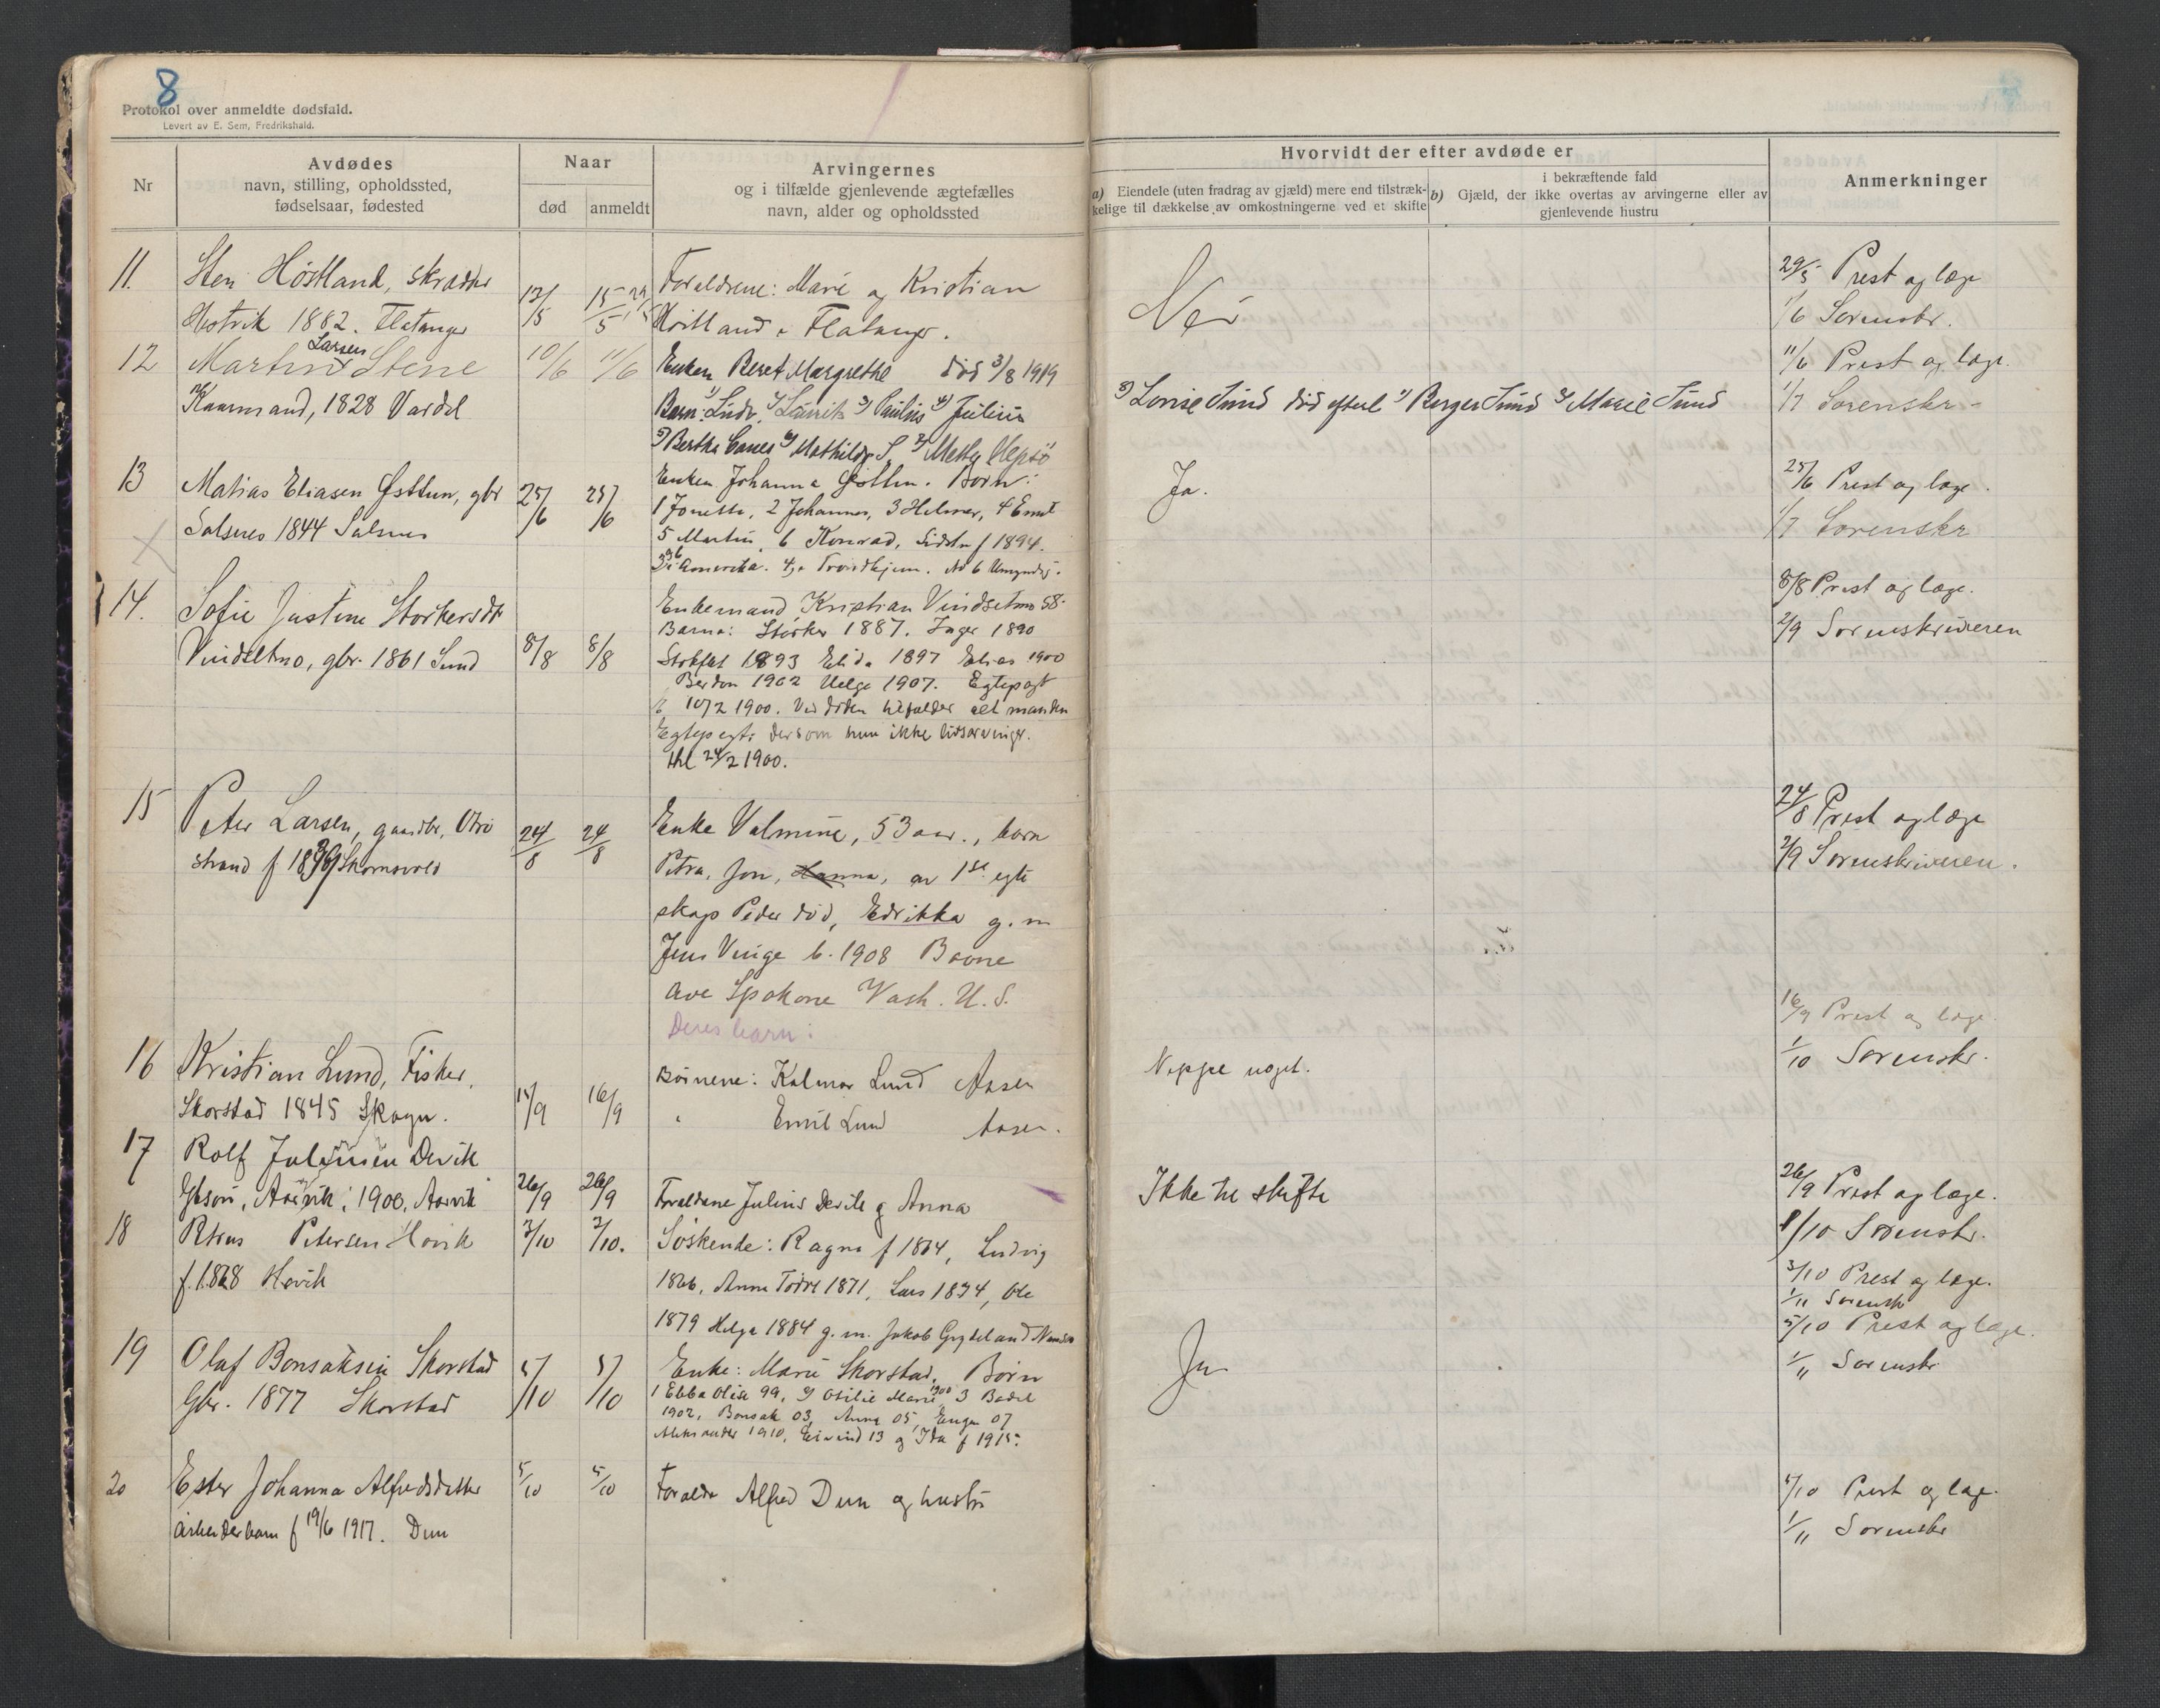 8
Protokol over anmeldte dødsfald.
Levert av E. Sem, Fredrikshald.
Nr
Avdødes
navn, stilling, opholdssted,
fødselsaar, fødested
Naar
død
anmeldt
Arvingernes
og i tilfælde gjenlevende ægtefælles
navn, alder og opholdssted
Hvorvidt der efter avdøde er
a) Eiendele (uten fradrag av gjæld) mere end tilstræk-
kelige til dækkelse av omkostningerne ved et skifte
i bekræftende fald
b) Gjæld, der ikke overtas av arvingerne eller av
gjenlevende hustru
Anmerkninger
11. Sten Høstland, skrædder
1882. Flatanger
13/5 15/5
Forældrene: Marie og Kristian
Flatanger.
Nei
29/5 Prest og læge
1/6 Sorenskr.
12 Martin Larsen Stene
Kaarmand, 1828 Vardal
10/6 11/6
Enken Beret Margrethe død 3/8 1919
Barn: 1) Ludv. 2) Laurits 3) Paulius 4) Julius
5) Bertha 6) Mathilde S. 7) Mette
8) Lovise Sund død efterl 1) Berger Sund 2) Marie Sund
11/6 Prest og læge.
1/7 Sorenskr
13 Matias Eliasen Østlun, gbr
Salsnes 1844 Salsnes
25/6 25/6
Enken Johanna Østlun. Born:
1 Jonetta, 2 Johannes, 3 Helmer, 4 Emil
5 Martin, 6 Konrad, sidste f 1894.
i Amerika. 4 i Trondhjem. No 6 Umyndig.
Ja.
25/6 Prest og læge.
1/7 Sorenskr
14. Sofie Justine Storkersdt
Vindsetmo, gbr. 1861 Sund
8/8 8/8
Enkemand Kristian Vindsetmo 58.
Barna: Storker 1887. Inger 1890
1893 Elida 1897 Elias 1900
1902 Helge 1907. Egtepagt
10/2 1900. Ved døden tilfalder alt manden
Egtepagt. dersom hun ikke livsarvinger.
thl 24/2 1900.
8/8 Prest og læge.
2/9 Sorenskriveren
15 Peter Larsen, gaardbr, Utvo
strand f 1839
24/8 24/8
Enke Valmine, 53 aar., barn
Petra, Jon, Hanna, av 1ste egte
skap Peder død, Edrikka g. m
Jens Vinge b. 1908 Boone
Ave Spokone Wash. U. S.
Deres barn:
24/8 Prest og læge
2/9 Sorenskriveren.
16 Kristian Lund, Fisker,
Skorstad 1845 Skogn.
15/9 16/9
Børnene: Kalmar Lund Aasen
" Emil Lund Aasen.
Neppe noget.
16/9 Prest og læge.
1/10 Sorenskr.
17 Rolf Juliussen Devik
Gbsøn, Aarvik, 1900, Aarvik
26/9 26/9
Foreldrene Julius Devik og Anna
Ikke til skifte
26/9 Prest og læge.
1/10 Sorenskr.
18 Petrus Petersen Hovik
f. 1868 Hovik
2/10 2/10.
Søskende: Ragna f 1864, Ludvig
1866, Anna 1871, Lars 1874, Ole
1879 Helga 1884 g. m. Jakob Grydeland Namsos
3/10 Prest og læge.
1/11 Sorenskr
19 Olaf Bonsaksen Skorstad
Gbr. 1877 Skorstad
5/10 5/10
Enke: Marie Skorstad. Børn
1 Ebba Olise 99, 2) Otilie Marie 1900, 3
1902, Bonsak 03, Anna 05, Eugen 07
Aleksander 1910, Eivind 13 og Ida f 1915.
Ja
5/10 Prest og læge.
1/11 Sorenskr
20 Ester Johanna Alfredsdatter
Arbeiderbarn f 19/6 1917. Dun
5/10 5/10
Foreldr Alfred Dun og hustru
5/10 Prest og læge.
1/11 Sorenskr